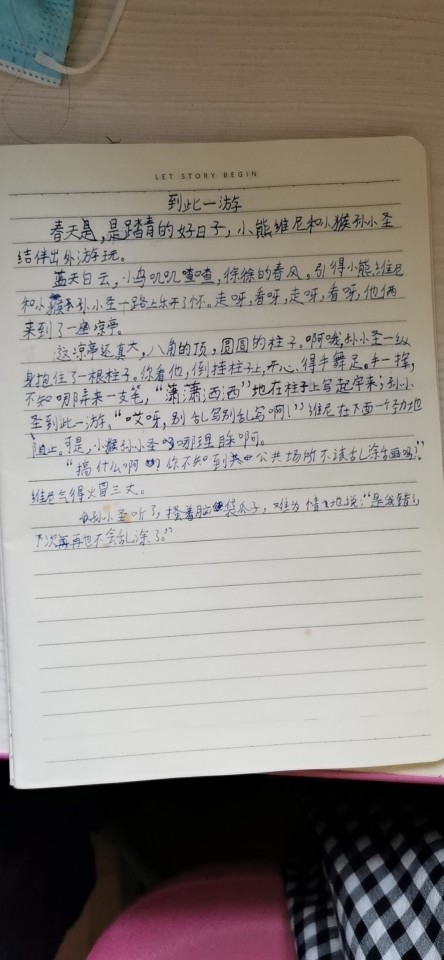 LET STORY BEGIN
到此一游
春天是,是踏青的好日子,小熊维尼和小猴孙小圣
结伴出外游玩。
蓝天白云,小鸟叽叽喳喳,徐徐的春风,引得小熊维尼
和小猴孙小圣一路上乐开了怀。走呀,看呀,走呀,看呀,他俩
来到了一座凉亭。
这凉亭还真大,八角的顶,圆圆的柱子。啊哦,孙小圣一纵
身抱住了一根柱子。你看他,倒挂柱子上,开心、得手舞足。手一挥,
不知哪弄来一支笔,“潇潇洒洒”地在柱子上写起字来;孙小
圣到此一游。“哎呀,别乱写别乱写啊!”维尼在下面一个劲地
阻止。可是,小猴孙小圣哪里睬啊。
“搞什么啊 你不知到公共场所不该乱涂乱画吗?”
维尼气得火冒三大。
孙小圣听了,搔着脑袋瓜子,难为情地说:“是我错了,
下次再也不会乱涂了。”